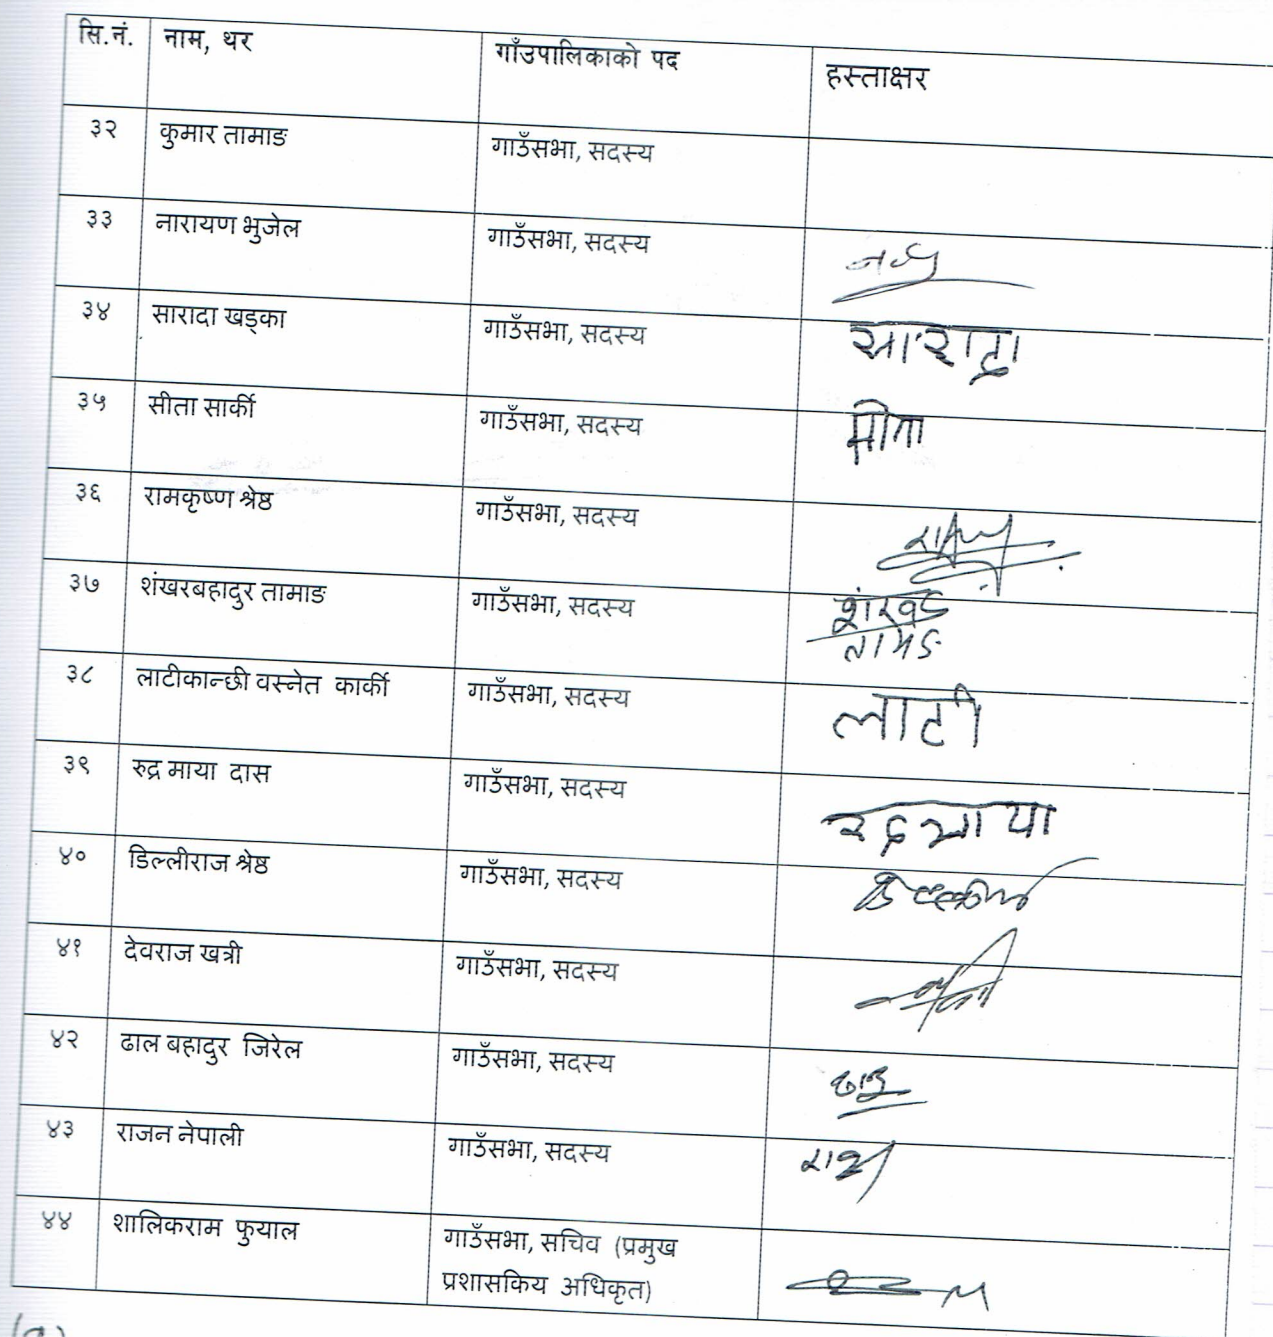 सि.नं. नाम, थर गाँउपालिकाको पद हस्ताक्षर
३२ कुमार तामाङ गाउँसभा, सदस्य
३३ नारायण भुजेल गाउँसभा, सदस्य
३४ सारादा खड्का गाउँसभा, सदस्य सारादा
३५ सीता सार्की गाउँसभा, सदस्य सीता
३६ रामकृष्ण श्रेष्ठ गाउँसभा, सदस्य
३७ शंखरबहादुर तामाङ गाउँसभा, सदस्य
तामाङ
३८ लाटीकान्छी वस्नेत कार्की गाउँसभा, सदस्य लाटी
३९ रुद्र माया दास गाउँसभा, सदस्य रुद्रमाया
४० डिल्लीराज श्रेष्ठ गाउँसभा, सदस्य
४१ देवराज खत्री गाउँसभा, सदस्य
४२ ढाल बहादुर जिरेल गाउँसभा, सदस्य
४३ राजन नेपाली गाउँसभा, सदस्य
४४ शालिकराम फुयाल गाउँसभा, सचिव (प्रमुख
प्रशासकिय अधिकृत)